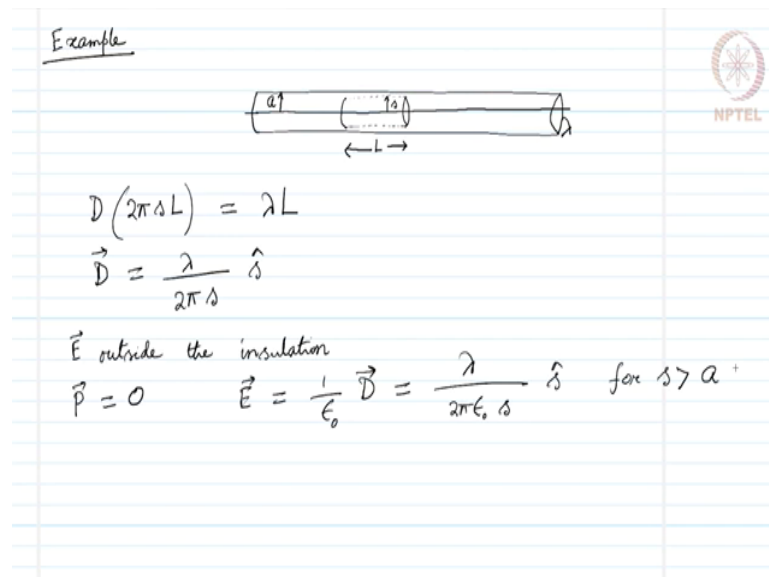 Example
NPTEL
a↑ ↑s
λ
←L→
D(2πsL) = λL
D⃗ = λ/2πs ŝ
E⃗ outside the insulation
P⃗ = 0 E⃗ = 1/ϵ₀ D⃗ = λ/2πϵ₀s ŝ for s > a